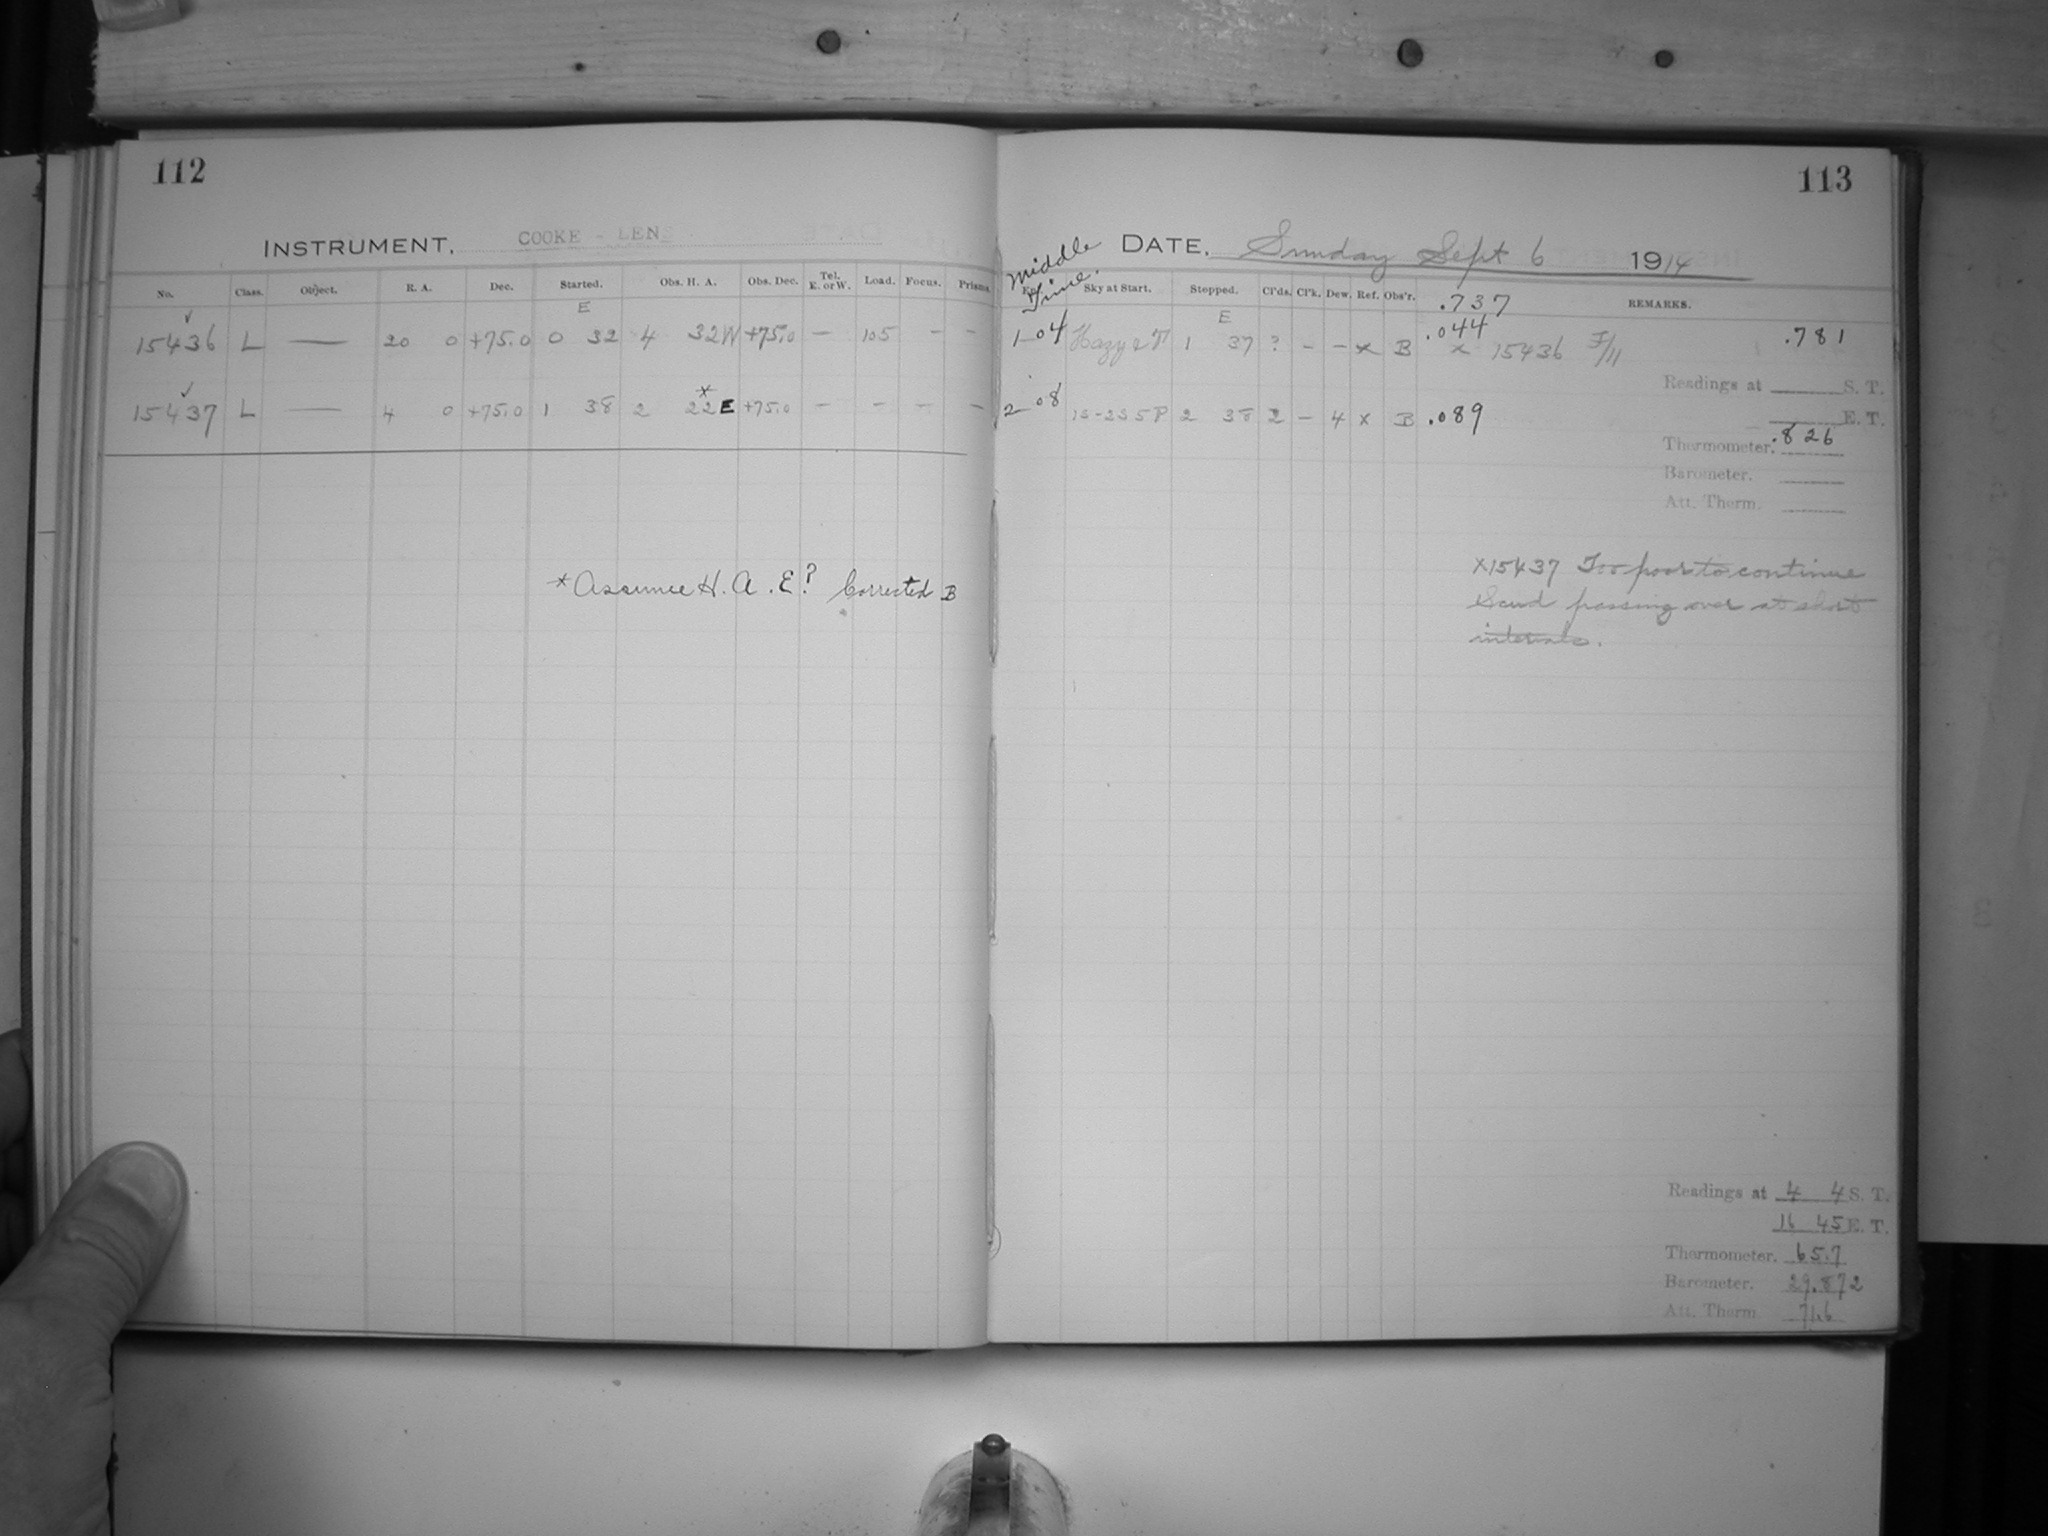 112
INSTRUMENT, COOKE - LENS
No. Class. Object. R. A. Dec. Started. Obs. H. A. Obs. Dec. Tel. E. or W. Load. Focus. Prisms.
E
15436 L — 20 0 +75.0 0 32 4 32W +75.0 — 105 - -
15437 L — 4 0 +75.0 1 38 2 22E* +75.0 - - - -
*Assume H. A. E? Corrected B
113
DATE, Sunday Sept 6 1914
Middle Time.
Sky at Start. Stopped. Cl'ds. Cl'k. Dew. Ref. Obs'r. REMARKS.
E .737
.044
1 04 Hazy 1 37 ? - - x B x 15436 .781
Readings at S. T.
2 08 1 38 2 - 4 x B .089
E. T.
Thermometer. .826
Barometer.
Att. Therm.
x15437 Too poor to continue
Scud passing over at short
intervals.
Readings at 4 4 S. T.
16 45 E. T.
Thermometer. 65.7
Barometer. 29.872
Att. Therm 71.6